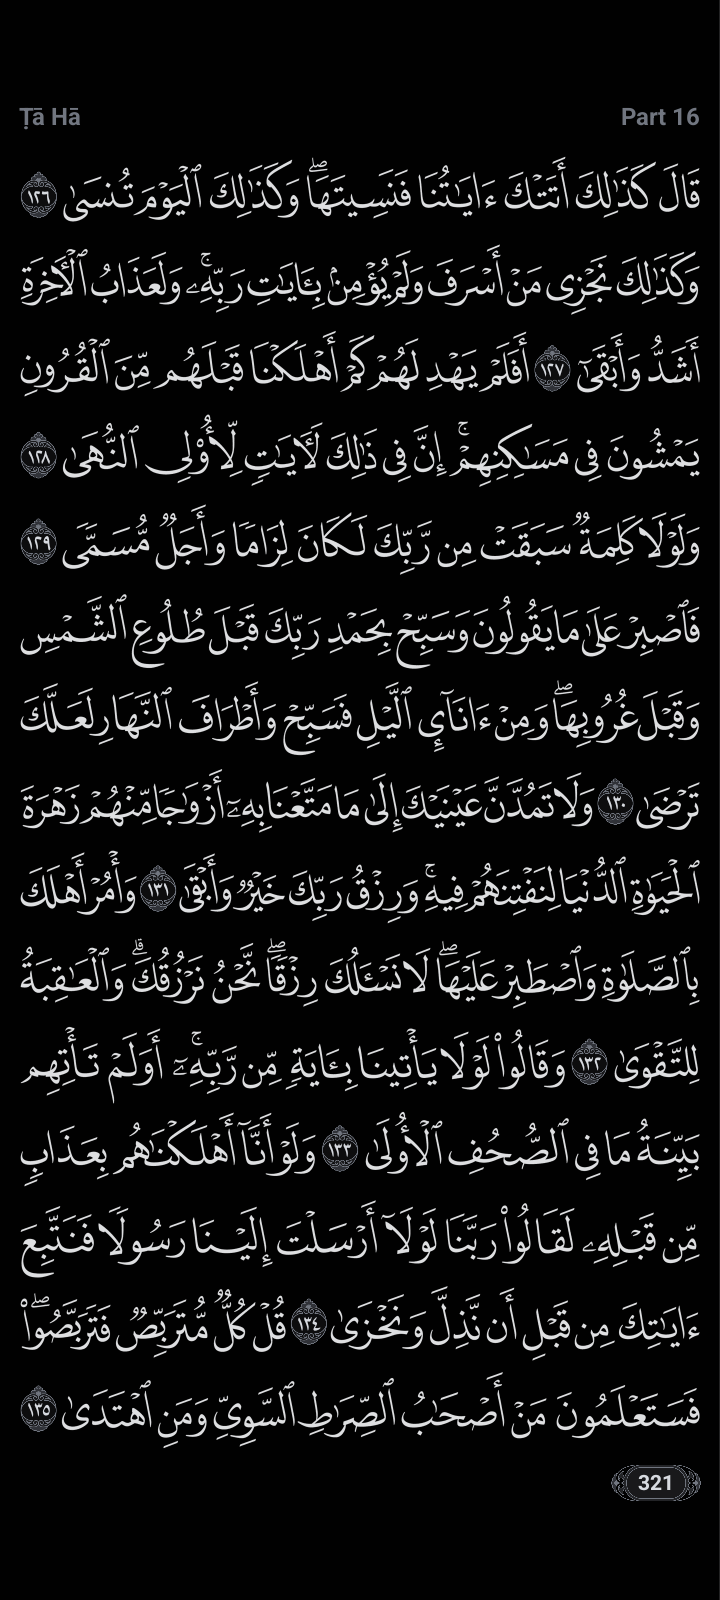 Ṭā Hā
Part 16
قَالَ كَذَٰلِكَ أَتَتۡكَ ءَايَٰتُنَا فَنَسِيتَهَاۖ وَكَذَٰلِكَ ٱلۡيَوۡمَ تُنسَىٰ ١٢٦
وَكَذَٰلِكَ نَجۡزِي مَنۡ أَسۡرَفَ وَلَمۡ يُؤۡمِنۢ بِـَٔايَٰتِ رَبِّهِۦۚ وَلَعَذَابُ ٱلۡأٓخِرَةِ
أَشَدُّ وَأَبۡقَىٰٓ ١٢٧ أَفَلَمۡ يَهۡدِ لَهُمۡ كَمۡ أَهۡلَكۡنَا قَبۡلَهُم مِّنَ ٱلۡقُرُونِ
يَمۡشُونَ فِي مَسَٰكِنِهِمۡۚ إِنَّ فِي ذَٰلِكَ لَأٓيَٰتٖ لِّأُوْلِي ٱلنُّهَىٰ ١٢٨
وَلَوۡلَا كَلِمَةٞ سَبَقَتۡ مِن رَّبِّكَ لَكَانَ لِزَامٗا وَأَجَلٞ مُّسَمّٗى ١٢٩
فَٱصۡبِرۡ عَلَىٰ مَا يَقُولُونَ وَسَبِّحۡ بِحَمۡدِ رَبِّكَ قَبۡلَ طُلُوعِ ٱلشَّمۡسِ
وَقَبۡلَ غُرُوبِهَاۖ وَمِنۡ ءَانَآيِٕ ٱلَّيۡلِ فَسَبِّحۡ وَأَطۡرَافَ ٱلنَّهَارِ لَعَلَّكَ
تَرۡضَىٰ ١٣٠ وَلَا تَمُدَّنَّ عَيۡنَيۡكَ إِلَىٰ مَا مَتَّعۡنَا بِهِۦٓ أَزۡوَٰجٗا مِّنۡهُمۡ زَهۡرَةَ
ٱلۡحَيَوٰةِ ٱلدُّنۡيَا لِنَفۡتِنَهُمۡ فِيهِۚ وَرِزۡقُ رَبِّكَ خَيۡرٞ وَأَبۡقَىٰ ١٣١ وَأۡمُرۡ أَهۡلَكَ
بِٱلصَّلَوٰةِ وَٱصۡطَبِرۡ عَلَيۡهَاۖ لَا نَسۡـَٔلُكَ رِزۡقٗاۖ نَّحۡنُ نَرۡزُقُكَۗ وَٱلۡعَٰقِبَةُ
لِلتَّقۡوَىٰ ١٣٢ وَقَالُواْ لَوۡلَا يَأۡتِينَا بِـَٔايَةٖ مِّن رَّبِّهِۦٓۚ أَوَلَمۡ تَأۡتِهِم
بَيِّنَةُ مَا فِي ٱلصُّحُفِ ٱلۡأُولَىٰ ١٣٣ وَلَوۡ أَنَّآ أَهۡلَكۡنَٰهُم بِعَذَابٖ
مِّن قَبۡلِهِۦ لَقَالُواْ رَبَّنَا لَوۡلَآ أَرۡسَلۡتَ إِلَيۡنَا رَسُولٗا فَنَتَّبِعَ
ءَايَٰتِكَ مِن قَبۡلِ أَن نَّذِلَّ وَنَخۡزَىٰ ١٣٤ قُلۡ كُلّٞ مُّتَرَبِّصٞ فَتَرَبَّصُواْۖ
فَسَتَعۡلَمُونَ مَنۡ أَصۡحَٰبُ ٱلصِّرَٰطِ ٱلسَّوِيِّ وَمَنِ ٱهۡتَدَىٰ ١٣٥
321